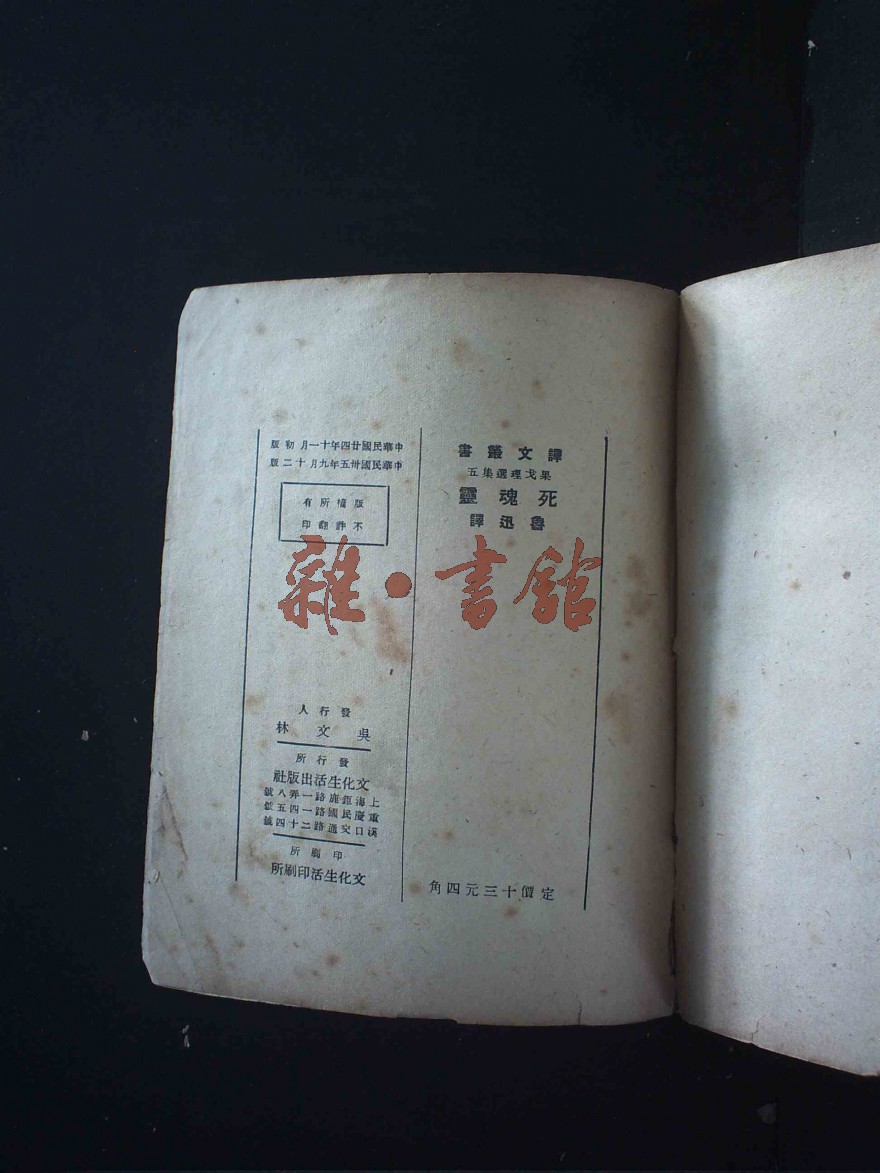 譯文叢書
果戈理選集五
死魂靈
魯迅譯
定價十三元四角
中華民國廿四年十一月初版
中華民國卅五年九月十二版
版權所有
不許翻印
雜·書館
發行人
吳文林
發行所
文化生活出版社
上海鉅鹿路一弄八號
重慶民國路一四五號
漢口交通路二十四號
印刷所
文化生活印刷所